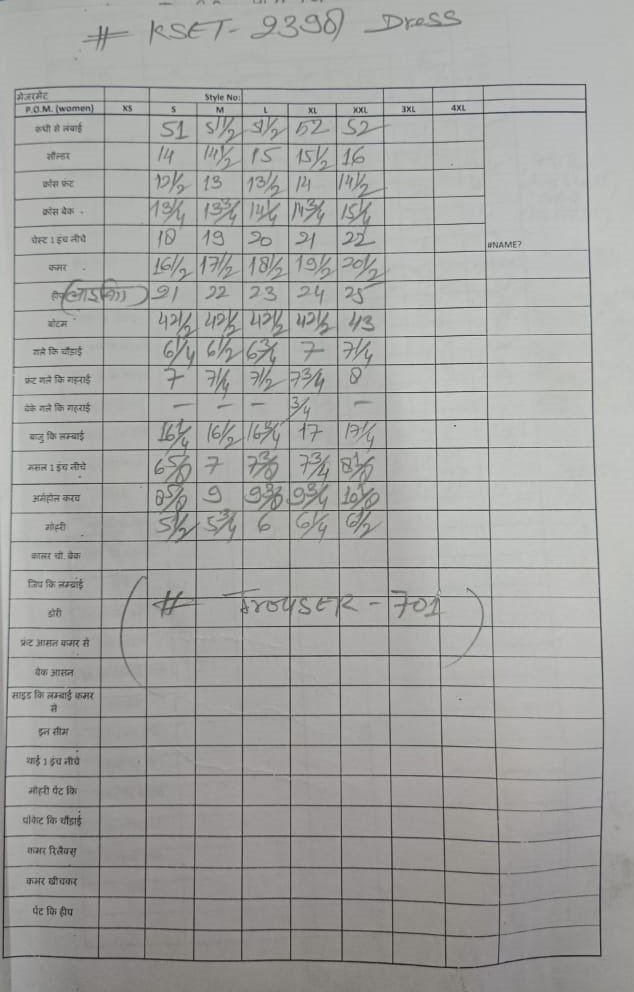 # KSET-2398 Dress
मेजरमेंट Style No:
P.O.M. (women) XS S M L XL XXL 3XL 4XL
कंधी से लंबाई 51 51 1/2 51 1/2 52 52
सोल्डर 14 14 1/2 15 15 1/2 16
क्रॉस फ्रंट 12 1/2 13 13 1/2 14 14 1/2
क्रॉस बेक 13 1/4 13 3/4 14 1/4 14 3/4 15 1/4
चेस्ट 1 इंच नीचे 18 19 20 21 22 #NAME?
कमर 16 1/2 17 1/2 18 1/2 19 1/2 20 1/2
हीप 21 22 23 24 25
बोटम 42 1/2 42 1/2 42 1/2 42 1/2 43
गले कि चौड़ाई 6 1/4 6 1/2 6 3/4 7 7 1/4
फ्रंट गले कि गहराई 7 7 1/4 7 1/2 7 3/4 8
बेक गले कि गहराई — — — 3/4 —
बाजु कि लम्बाई 16 1/4 16 1/2 16 3/4 17 17 1/4
मसल 1 इंच नीचे 6 5/8 7 7 3/8 7 3/4 8 1/8
अर्महोल करव 8 5/8 9 9 3/8 9 3/4 10 1/8
मोहरी 5 1/2 5 3/4 6 6 1/4 6 1/2
कालर चौ. बेक
जिप कि लम्बाई
डोरी (# TrouSER - 701)
फ्रंट आसन कमर से
बेक आसन
साइड कि लम्बाई कमर
से
इन सीम
थाई 1 इंच नीचे
मोहरी पेंट कि
पॉकेट कि चौड़ाई
कमर रिलैक्स
कमर खीचकर
पेंट कि हीप